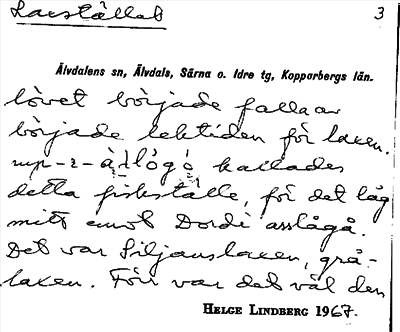 Laxstället 3
Älvdalens sn, Älvdals, Särna o. Idre tg, Kopparbergs län.
lövet började falla av
började lektiden för laxen.
kallades
detta fiskställe, för det låg
mitt emot Dordi asslågå.
Det var Siljanslaxen, grå-
laxen. Förr var det väl den
HELGE LINDBERG 1967.